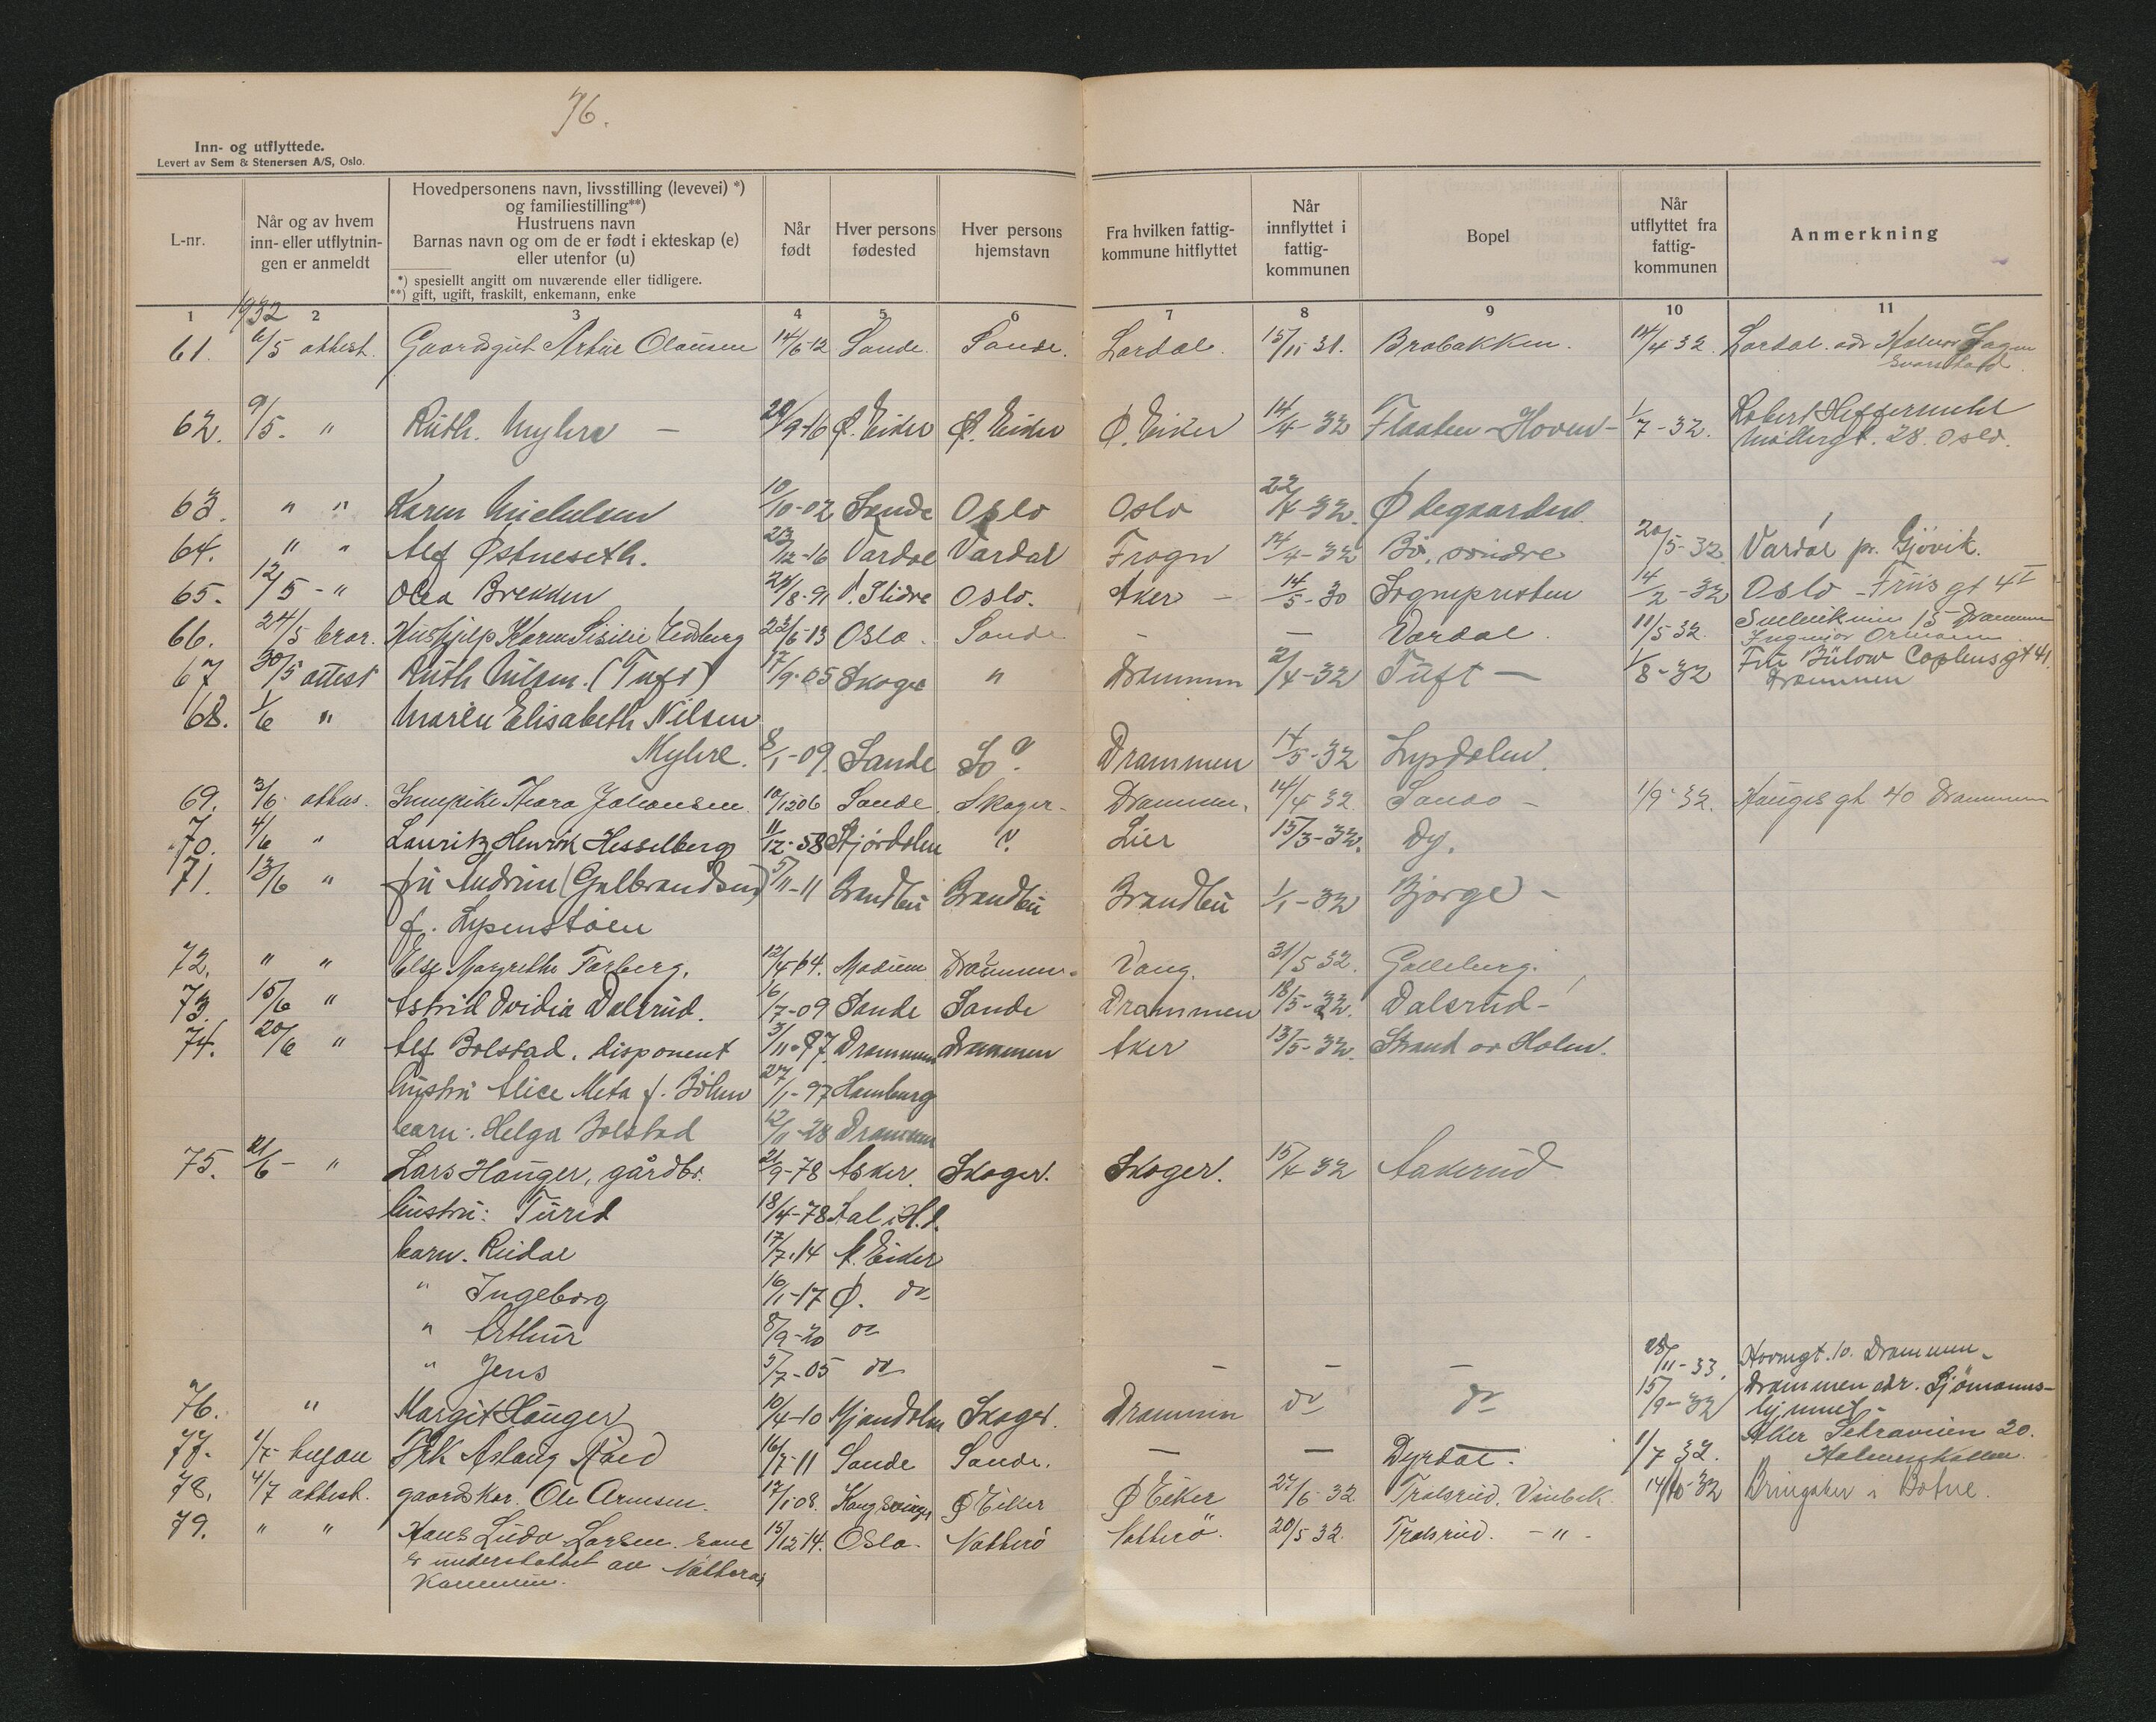 76.
Inn- og utflyttede.
Levert av Sem & Stenersen A/S, Oslo.
L-nr. Når og av hvem inn- eller utflytnin- gen er anmeldt Hovedpersonens navn, livsstilling (levevei) *) og familiestilling**) Hustruens navn Barnas navn og om de er født i ekteskap (e) eller utenfor (u) *) spesiellt angitt om nuværende eller tidligere. **) gift, ugift, fraskilt, enkemann, enke Når født Hver persons fødested Hver persons hjemstavn Fra hvilken fattig- kommune hitflyttet Når innflyttet i fattig- kommunen Bopel Når utflyttet fra fattig- kommunen Anmerkning
1 2 3 4 5 6 7 8 9 10 11
1932
61. 6/5 attest. Gaardsgut Artur Olausen 14/6-12 Sande. Sande. Lardal. 15/11 31. Brabakken. 14/4 32. Lardal. adr Halvor Hagen
Svarstad.
62. 9/5. " Ruth. Myhre — 20/9-16 Ø. Eiker Ø. Eiker Ø. Eiker 14/4-32 Flaaten - Hoven- 1/7-32. Robert Heffermehl
Møllergt. 28. Oslo.
63. " " Karen Michelsen 10/10-02 Sande Oslo Oslo 22/4-32. Ødegaarden.
64. " " Alf Østneseth. 23/12-16 Vardal Vardal Frogn 14/4-32 Bö, söndre 20/5-32 Vardal pr. Gjövik.
65. 12/5 - " Olea Brekken 24/8-91 V. Slidre Oslo. Aker - 14/5-30 Sognepresten 14/2-32 Oslo - Friis gt 4 I
66. 24/5 bror. Hushjelp Karen Sisilie Eidsberg 23/6-13 Oslo. Sande — — Vardal. 11/5 32. 15 Drammen
Ingeniør
67 30/5 attest Ruth Nilsen. (Tuft) 17/9-05 Skoger " Drammen 2/4-32 Tuft — 1/8-32 Fru Bülow Coplensgt 41.
Drammen
68. 1/6 " Maren Elisabeth Nilsen
Myhre. 8/1-09. Sande So?. Drammen 14/5-32
69. 3/6. attes. Thora Johansen 10/1506 Sande Skoger- Drammen. 14/4 32. Sando - 1/9-32. Hauges gt 40 Drammen
70. 4/6 " Lauritz Henrik Hesselberg 11/12-58 Stjördalen ". Lier 15/3-32. Dy.
71. 13/6 " fru Andrine (Gulbrandsen) 5/11-11 Brandbu Brandbu Brandbu 1/1-32 Bjorge -
f. Lysenstöen
72. " " Else Margrethe Farberg. 12/4 64. Modum Drammen. Vang. 31/5 32. Galleberg.
73. 15/6 " Astrid Ovidia Dalsrud. 16/7-09 Sande Sande Drammen 18/5-32. Dalsrud-
74. 20/6 " Alf Bolstad. disponent 3/11-97. Drammen Drammen Aker 13/5-32. Strand av Holm.
hustru Alice Meta f. Böhm 27/1-97 Hamburg
barn: Helga Bolstad 12/11-28 Drammen
75. 21/6 - " Lars Hauger, gårdbr. 21/9-78 Asker. Skoger. Skoger. 15/4 32 Aakerud
hustru: Turid 18/4-78 Aal i H.d.
barn. Reidar 17/7-14 N. Eiker
" Ingeborg 16/1-17 Ø. do
" Arthur 8/9-20 do
" Jens 5/7-05 do — — — 28/11-33. Hovengt. 10. Drammen.
76. " Margit Hauger 10/4-10 Mjøndalen Skoger. Drammen do do 15/9-32 Drammen adr. Sjömanns-
hjemmet -
77. 1/7- Frk Aslaug Aas 16/7-11 Sande Sande. — — Dyrdal. 1/7 32. Aker 20.
Holmenkollen.
78. 4/7 attest. gaardskar. Ole Arnesen. 17/1-08. Kongsvinger Ø Eiker Ø Eiker 27/6-32 Tralsrud. Vinbek. 14/10-32 Bringaker i Botne.
79. " " Hans Ludv Larsen. som 15/12 14. Oslo. Nötterö Nötterö. 20/5 32. Tralsrud. -"-
er understöttet av Nötterö
Kommune.